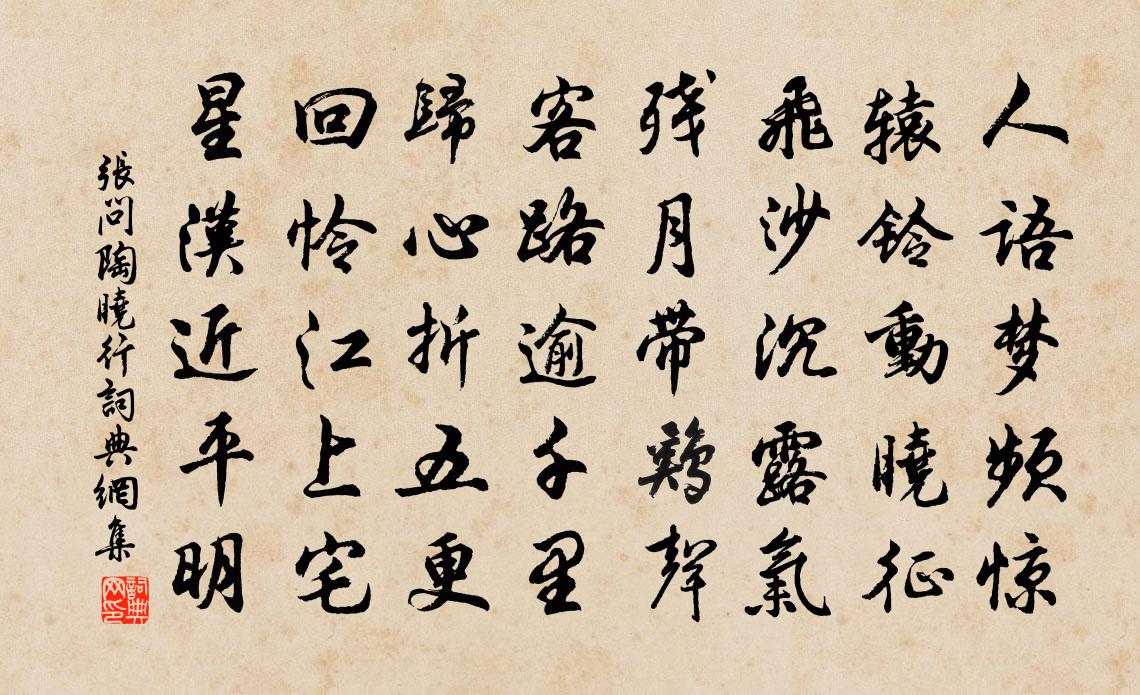 人语梦频惊
辕铃動曉征
飛沙沉露氣
残月带鷄聲
客路逾千里
歸心折五更
回怜江上宅
星漢近平明
張問陶曉行詞典網集
詞典网印